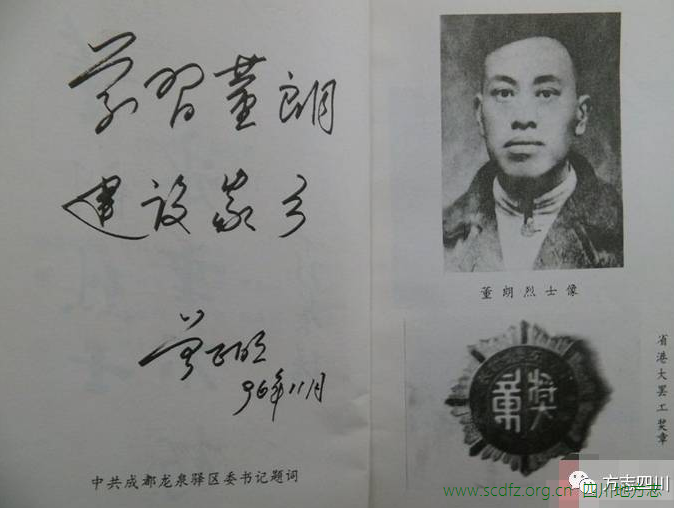 学習董朗
建设家乡
96年11月
中共成都龙泉驿区委书记题词
董朗烈士像
省港大罢工奖章
奖章
方志四川
www.scdfz.org.cn 四川地方志